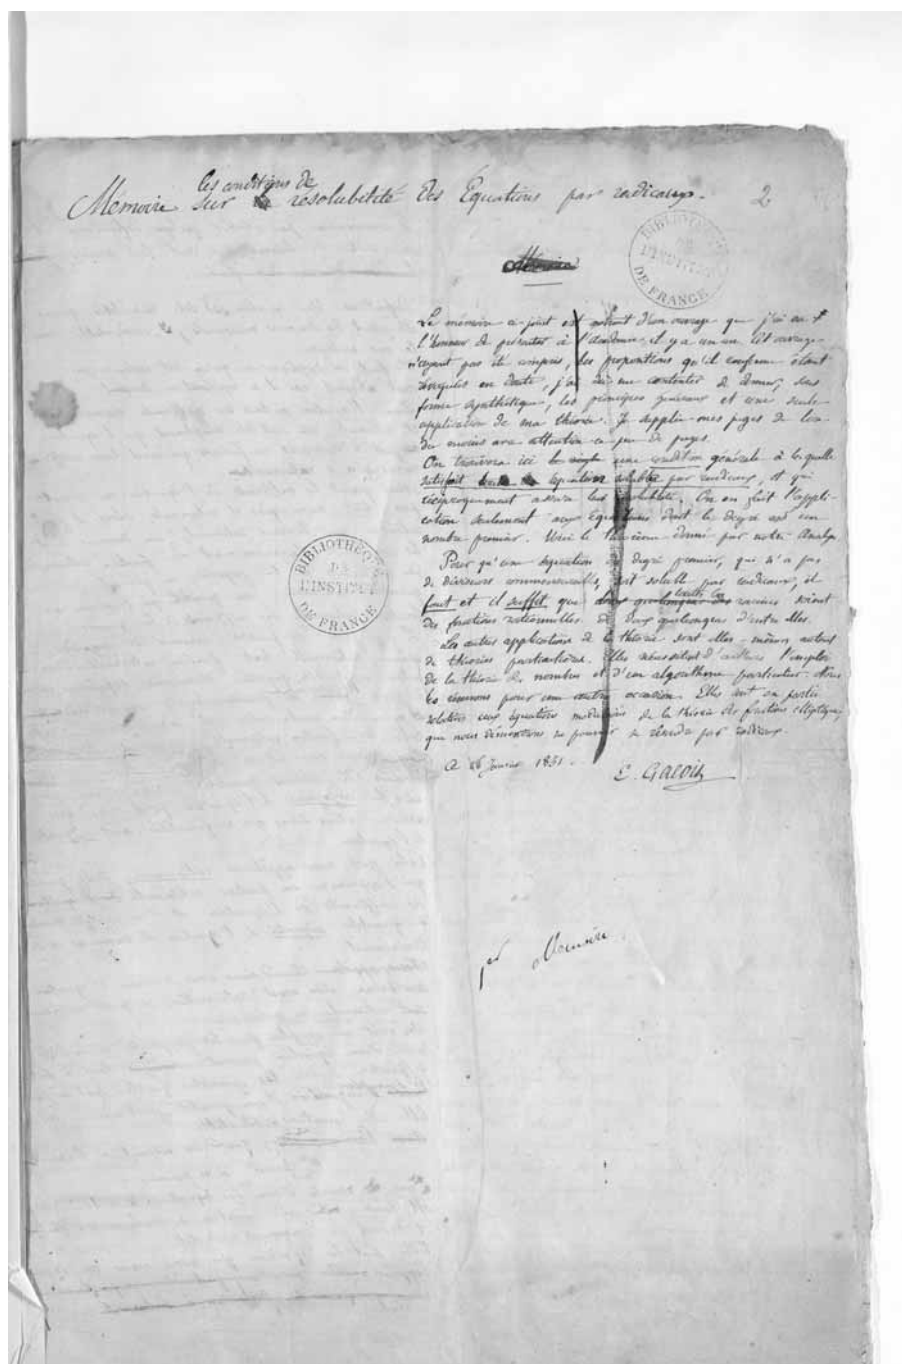 les conditions de
Mémoire sur la résolubilité des Equations par radicaux. 2
Mémoire
BIBLIOTHÈQUE
DE
L'INSTITUT
DE FRANCE
Le mémoire ci-joint est extrait d'un ouvrage que j'ai eu
l'honneur de présenter à l'Académie il y a un an. Cet ouvrage
n'ayant pas été compris, les propositions qu'il renferme étant
révoquées en doute, j'ai dû me contenter de donner, sous
forme synthétique, les principes généraux et une seule
application de ma théorie. Je supplie mes juges de lire
du moins avec attention ce peu de pages.
On trouvera ici une condition générale à laquelle
satisfait toute équation soluble par radicaux, et qui
réciproquement assure leur résolubilité. On en fait l'appli-
cation seulement aux équations dont le degré est un
nombre premier. Voici le théorème donné par notre Analyse
Pour qu'une équation de degré premier, qui n'a pas
de diviseurs commensurables, soit soluble par radicaux, il
toutes les
faut et il suffit que deux quelconques des racines soient
des fonctions rationnelles de deux quelconques d'entre elles.
Les autres applications de la théorie sont elles-mêmes autant
de théories particulières. Elles nécessitent d'ailleurs l'emploi
de la théorie des nombres et d'un algorithme particulier. Nous
les réservons pour une autre occasion. Elles sont en partie
relatives aux équations modulaires de la théorie des fonctions elliptiques,
que nous démontrons ne pouvoir se résoudre par radicaux.
Ce 16 Janvier 1831.
E. Galois
BIBLIOTHÈQUE
DE
L'INSTITUT
DE FRANCE
1er Memoire